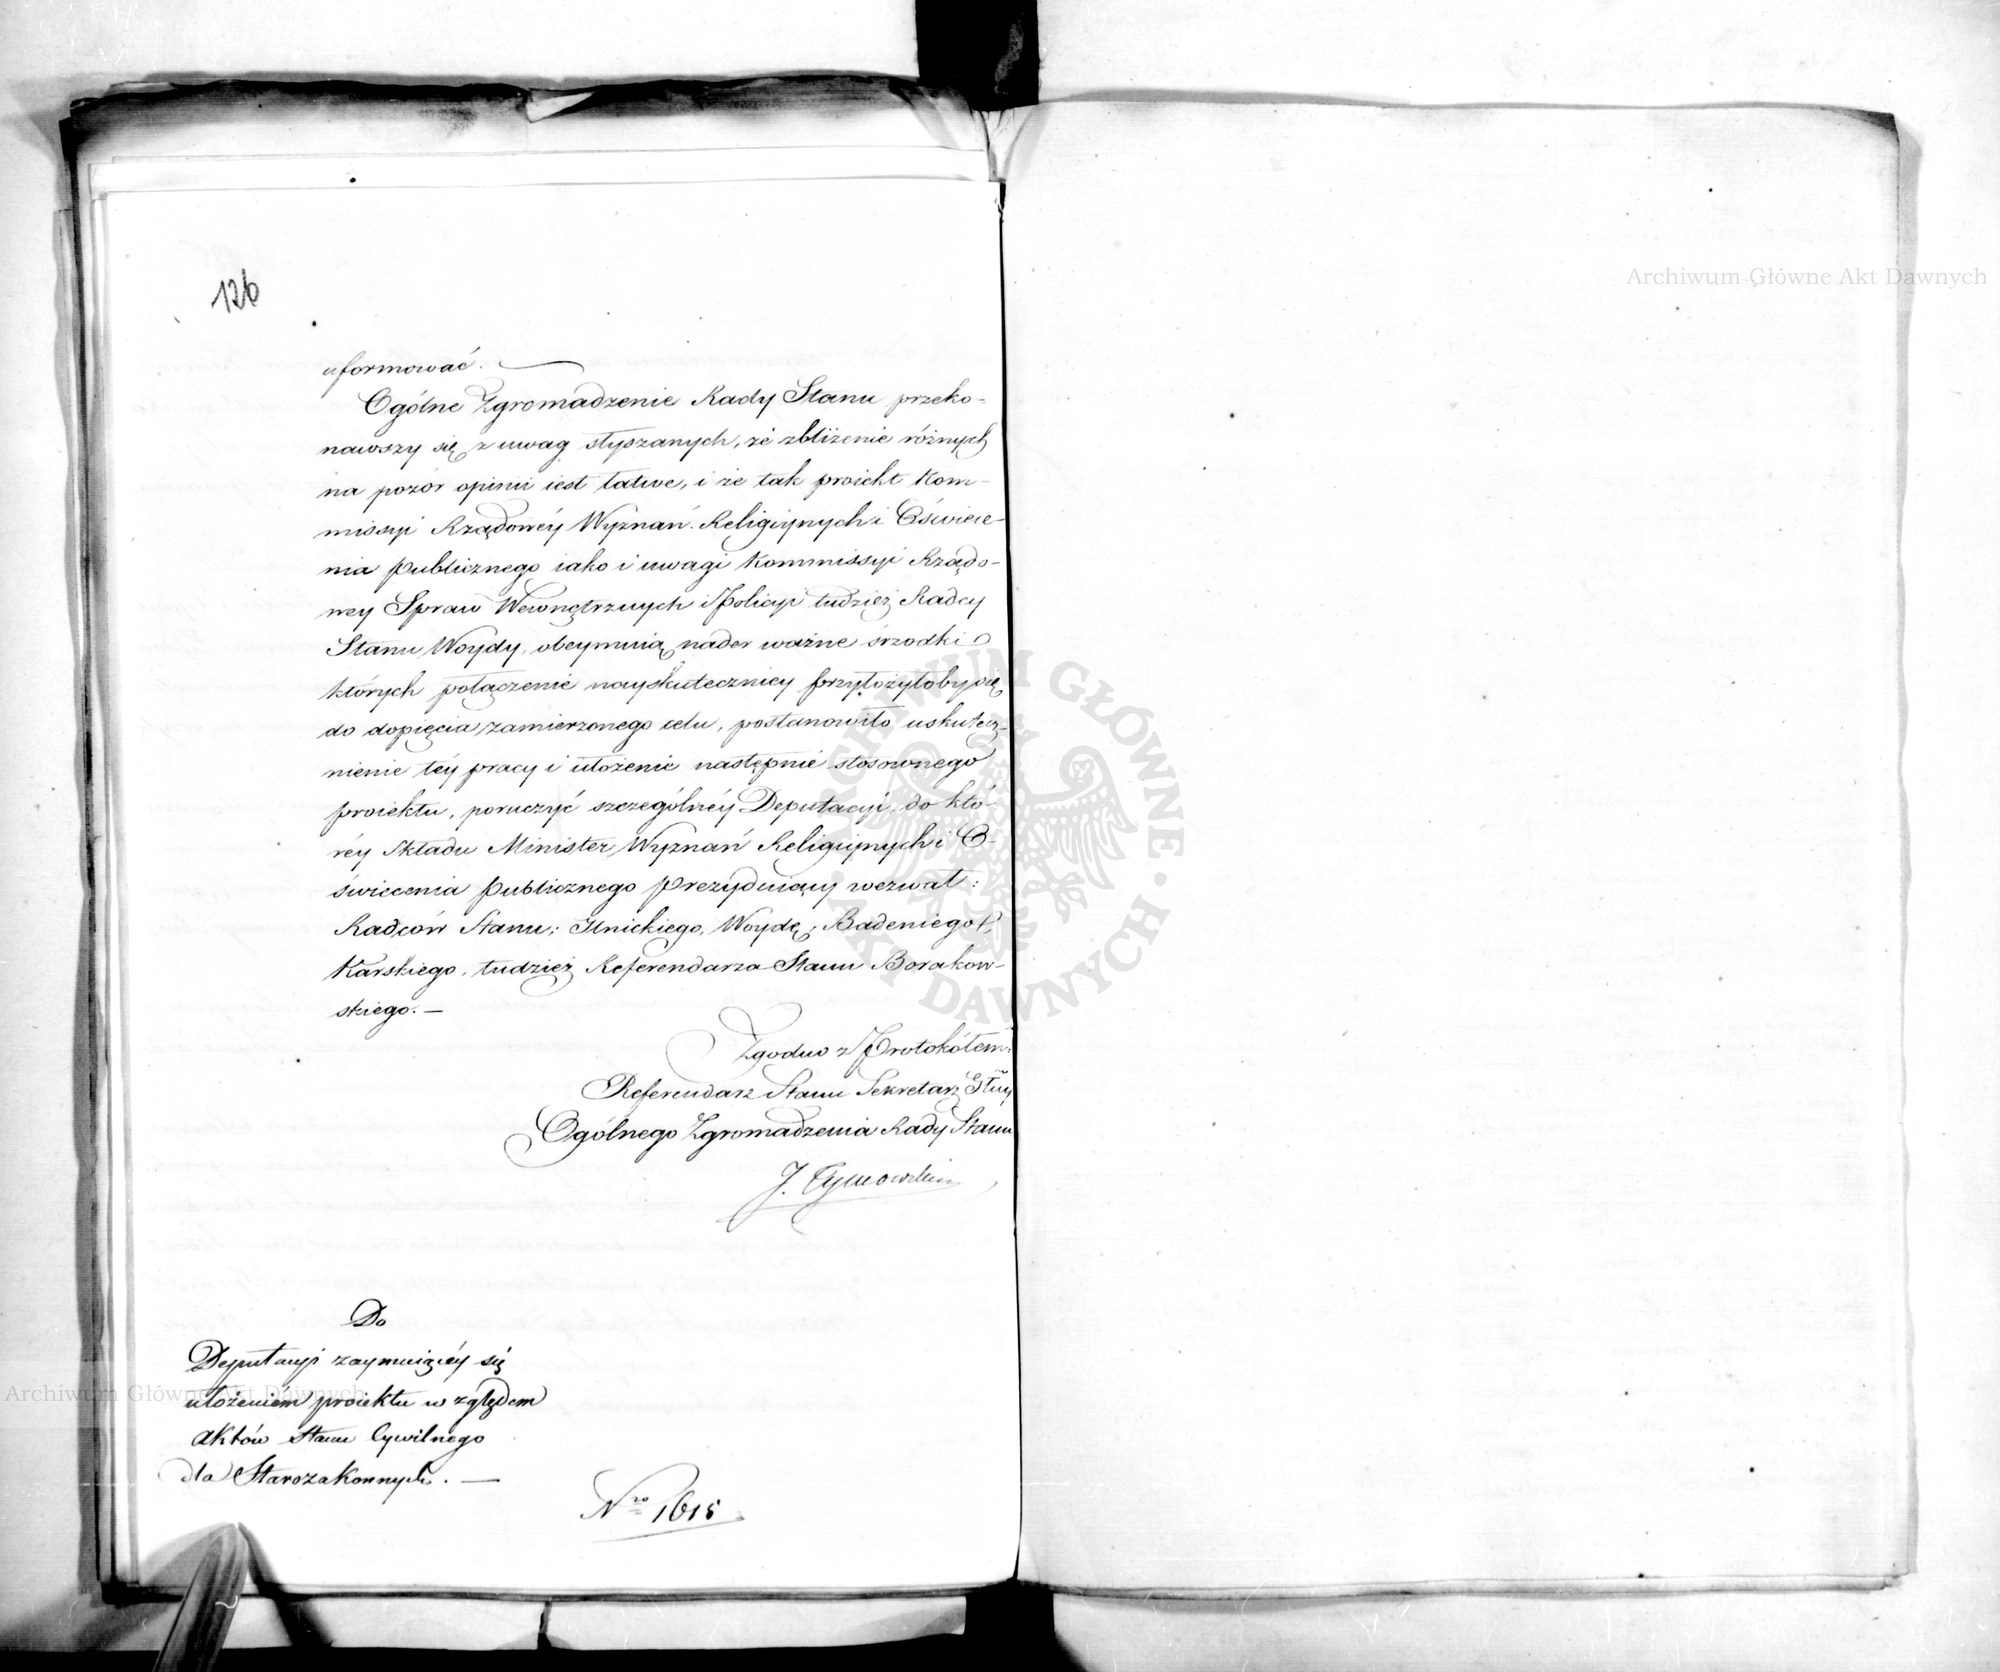 126
uformować. —
Ogólne Zgromadzenie Rady Stanu przeko-
nawszy się z uwag słyszanych, że zbliżenie różnych
na pozór opinii iest łatwe, i że tak proiekt Kom-
missyi Rządowéy Wyznań Religiynych i Oświece-
nia Publicznego iako i uwagi Kommissyi Rządo-
wey Spraw Wewnętrznych i Policyi tudzież Radcy
Stanu Woydy, obeymuią nader ważne śrzodki
których połączenie nayskuteczniey przyłożyłoby się
do dopięcia zamierzonego celu, postanowiło uskutecz-
nienie téy pracy i ułożenie następnie stosownego
proiektu, poruczyć szczególnéy Deputacyi, do któ-
réy składu Minister Wyznań Religiynych i O-
świecenia Publicznego Prezyduiący wezwał:
Radców Stanu; Ilnickiego, Woydę, Badeniego,
Karskiego, tudzież Referendarza Stanu Borakow-
skiego. —
Zgodno z Protokółem:
Referendarz Stanu Sekretarz Głny
Ogólnego Zgromadzenia Rady Stanu
J. Tymowski
Do
Deputacyi zaymuiącéy się
ułożeniem proiektu względem
Aktów Stanu Cywilnego
dla Starozakonnych. —
Nro 1615
Archiwum Główne Akt Dawnych
Archiwum Główne Akt Dawnych
ARCHIWUM GŁÓWNE AKT DAWNYCH